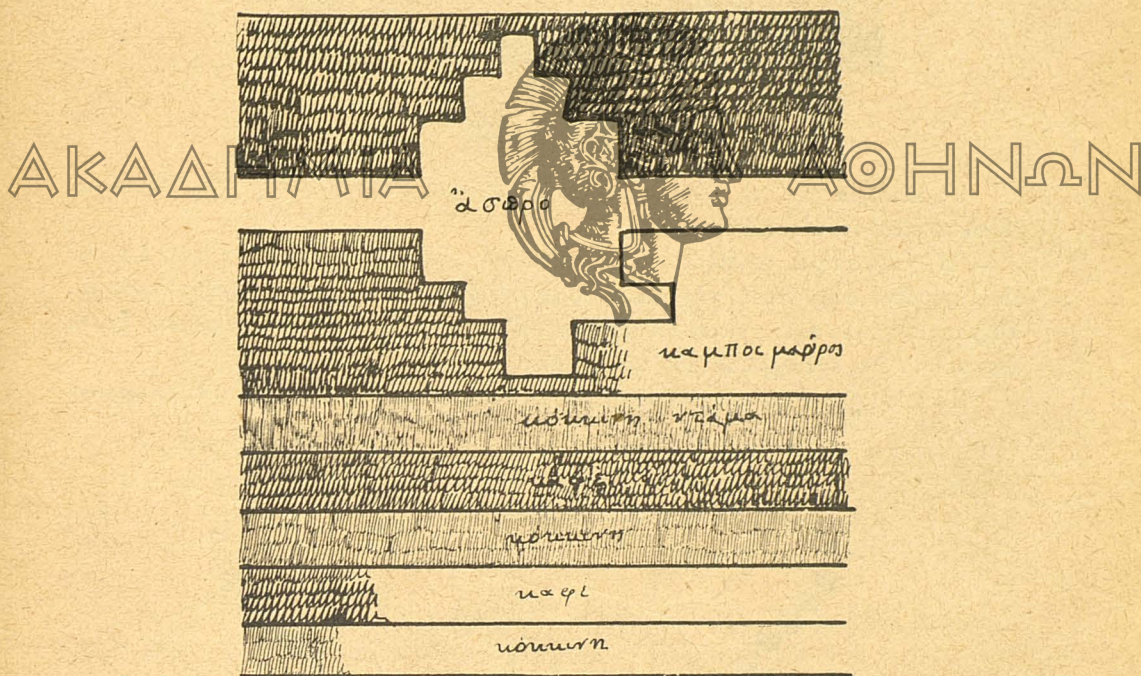 ΑΚΑΔΗΜΙΑ ΑΘΗΝΩΝ
ἄσπρο
καμπος μαῦρος
κόκκινη ντάμα
καφὲ
κόκκινη
καφὲ
κόκκινη